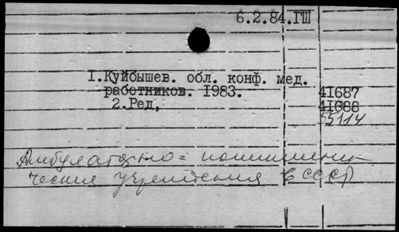 6.2.84.ГШ
I.Куйбышев. обл. конф. мед.
работников. I983. 41687
2.Ред, 41688
55114
Амбулаторно = поликлини
ческие учреждения в СССР